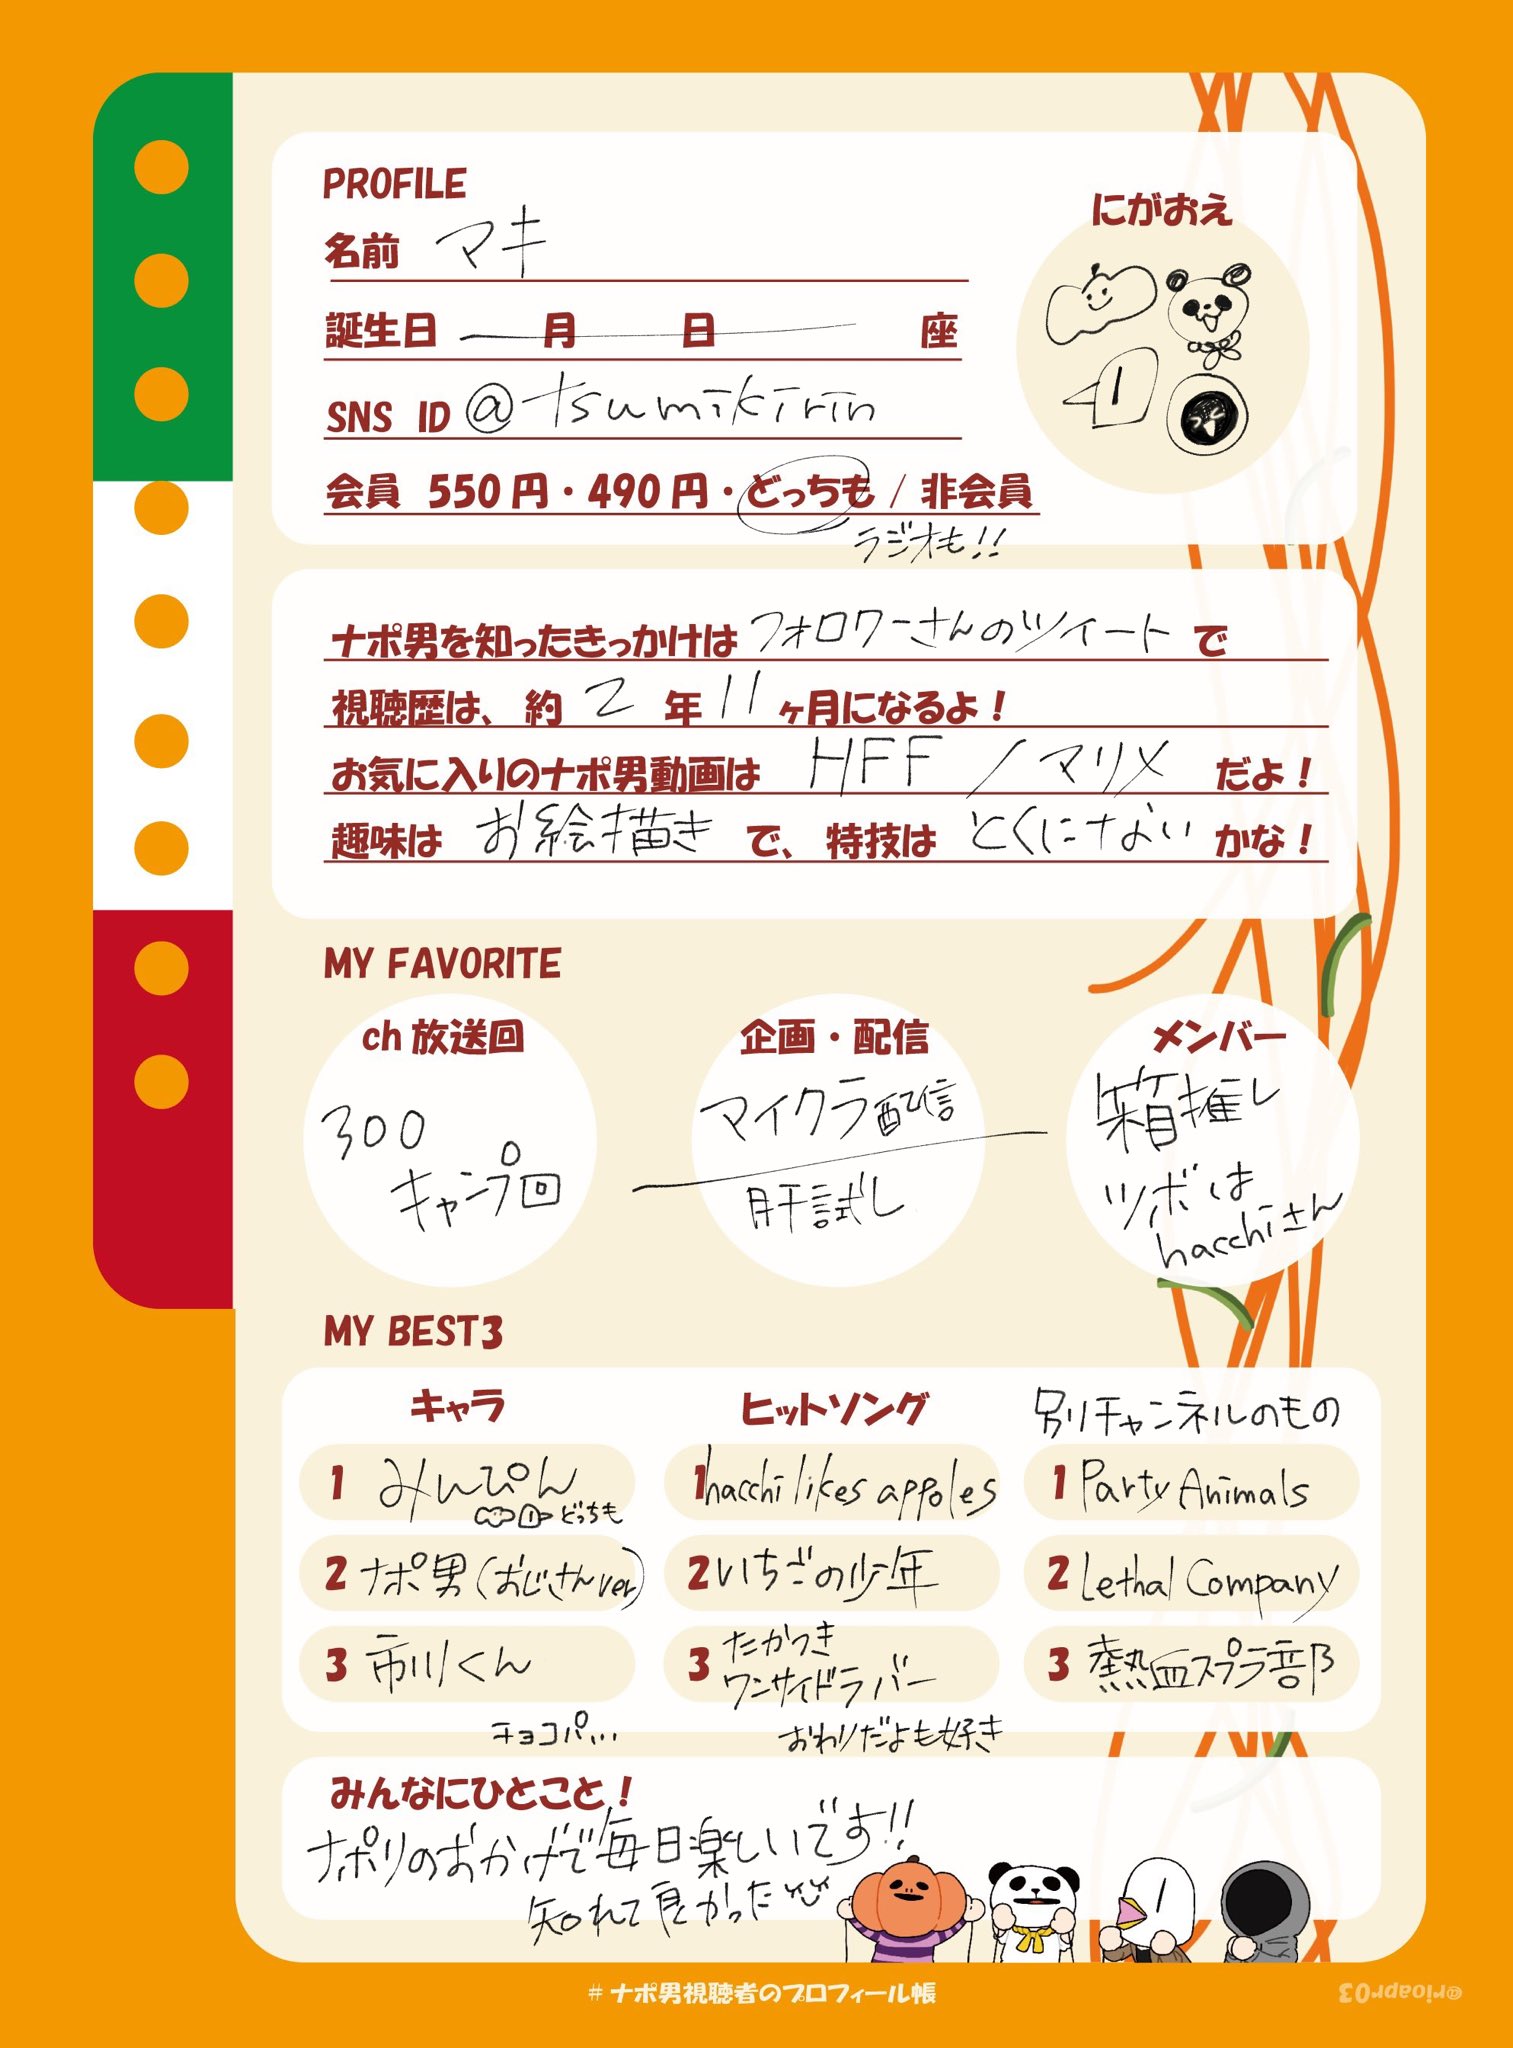 PROFILE
にがおえ
名前 マキ
誕生日 月 日 座
SNS ID @tsumikirin
会員 550円・490円・どっちも / 非会員
ラジオも!!
ナポ男を知ったきっかけは フォロワーさんのツイート で
視聴歴は、約 2 年 11 ヶ月になるよ！
お気に入りのナポ男動画は HFF / マリメ だよ！
趣味は お絵描き で、特技は とくにない かな！
MY FAVORITE
ch 放送回
300
キャンプ回
企画・配信
マイクラ配信
肝試し
メンバー
箱推し
ツボは
hacchiさん
MY BEST3
キャラ
1 みんぴん
どっちも
2 ナポ男(おじさんver)
3 市川くん
チョコパ...
ヒットソング
1 hacchi likes apples
2 いちごの少年
3 たかつき
ワンサイドラバー
おわりだよも好き
別チャンネルのもの
1 Party Animals
2 Lethal Company
3 熱血スプラ部
みんなにひとこと！
ナポリのおかげで毎日楽しいです!!
知れて良かった
#ナポ男視聴者のプロフィール帳
@rioapr03